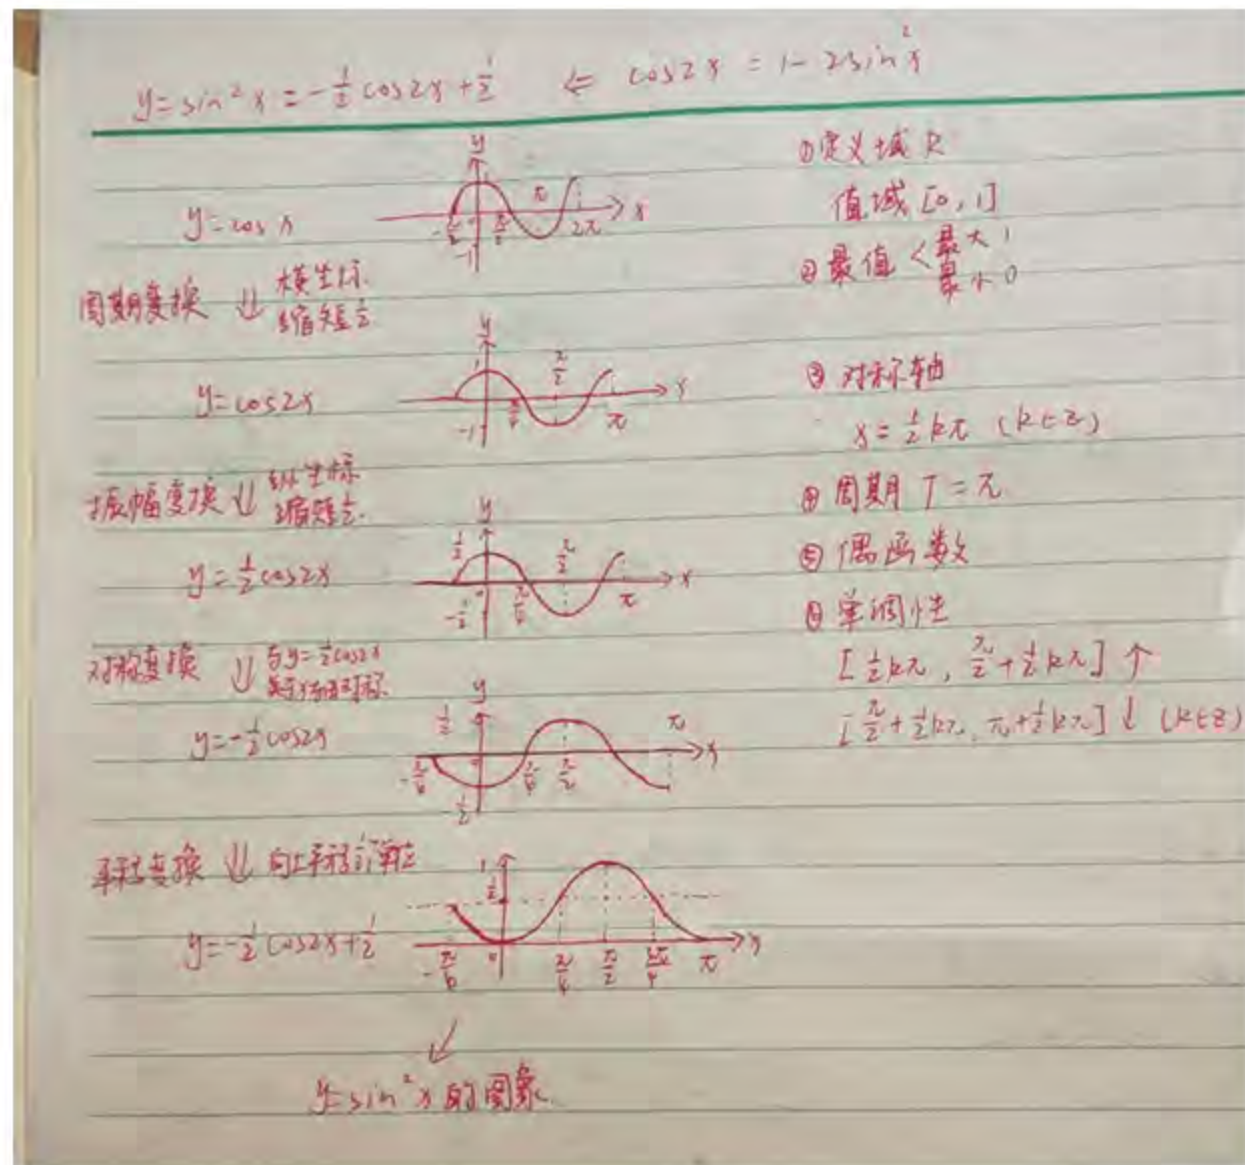 y=sin²x=-1/2cos2x+1/2 ⇐ cos2x=1-2sin²x
y=cosx
y
x
-π/2
0
π/2
π
2π
-1
周期变换 ⇓ 横坐标
缩短1/2
y=cos2x
y
1
x
-1
π/4
π/2
π
振幅变换 ⇓ 纵坐标
缩短1/2
y=1/2cos2x
y
1/2
x
-1/2
π/4
π/2
π
对称变换 ⇓ 与y=1/2cos2x
关于x轴对称
y=-1/2cos2x
y
1/2
x
π/4
π/2
π
平移变换 ⇓ 向上平移1/2单位
y=-1/2cos2x+1/2
1
1/2
x
0
π/4
π/2
3π/4
π
y=sin²x的图象
①定义域R
值域[0,1]
②最值<最大1
最小0
③对称轴
x=1/2kπ (k∈Z)
④周期T=π
⑤偶函数
⑥单调性
[1/2kπ, π/2+1/2kπ]↑
[π/2+1/2kπ, π+1/2kπ]↓ (k∈Z)